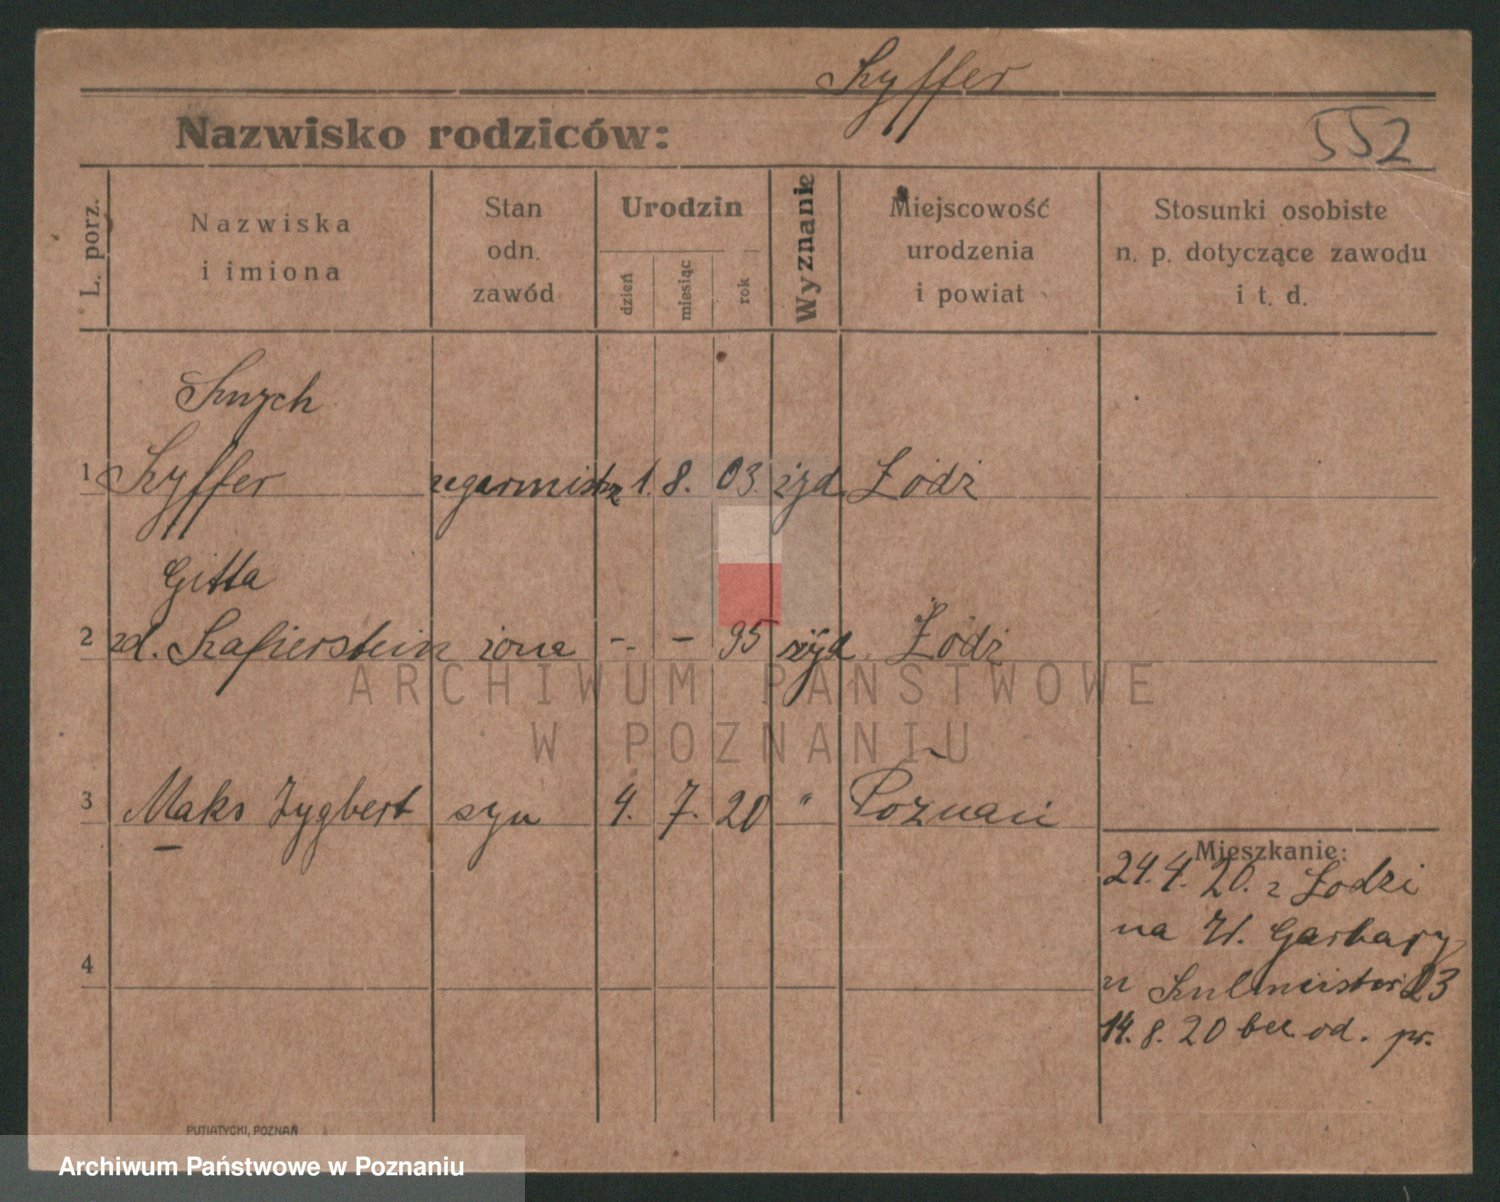 Szyffer
Nazwisko rodziców:
552
L. porz.
Nazwiska
i imiona
Stan
odn.
zawód
Urodzin
dzień
miesiąc
rok
Wyznanie
Miejscowość
urodzenia
i powiat
Stosunki osobiste
n. p. dotyczące zawodu
i t. d.
1
Szyffer zegarmistrz 1. 8. 03. żyd Łódź
Gitta
2 zd. Szafierstein żona - - 95 żyd Łódź
3 Maks Zygbert syn 4. 7. 20 " Poznań
4
Mieszkanie:
24.4.20. z Łodzi
na W. Garbary
u Szulmeister 23
14.8.20 bez od. pr.
PUTIATYCKI, POZNAŃ
ARCHIWUM PAŃSTWOWE
W POZNANIU
Archiwum Państwowe w Poznaniu